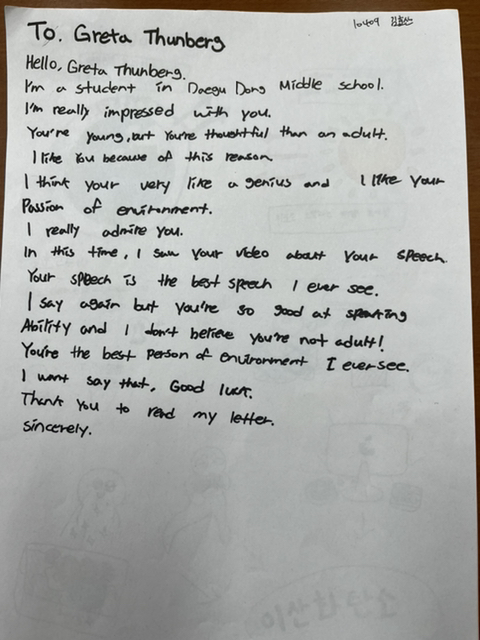 10409
To. Greta Thunberg
Hello, Greta Thunberg.
I'm a student in Daegu Dong Middle school.
I'm really impressed with you.
You're young, but you're thoughtful than an adult.
I like you because of this reason.
I think your very like a genius and I like your
Passion of environment.
I really admire you.
In this time, I saw your video about your speech.
Your speech is the best speech I ever see.
I say again but you're so good at speaking
Ability and I don't believe you're not adult!
You're the best person of environment I ever see.
I want say that, Good luck.
Thank you to read my letter.
Sincerely.